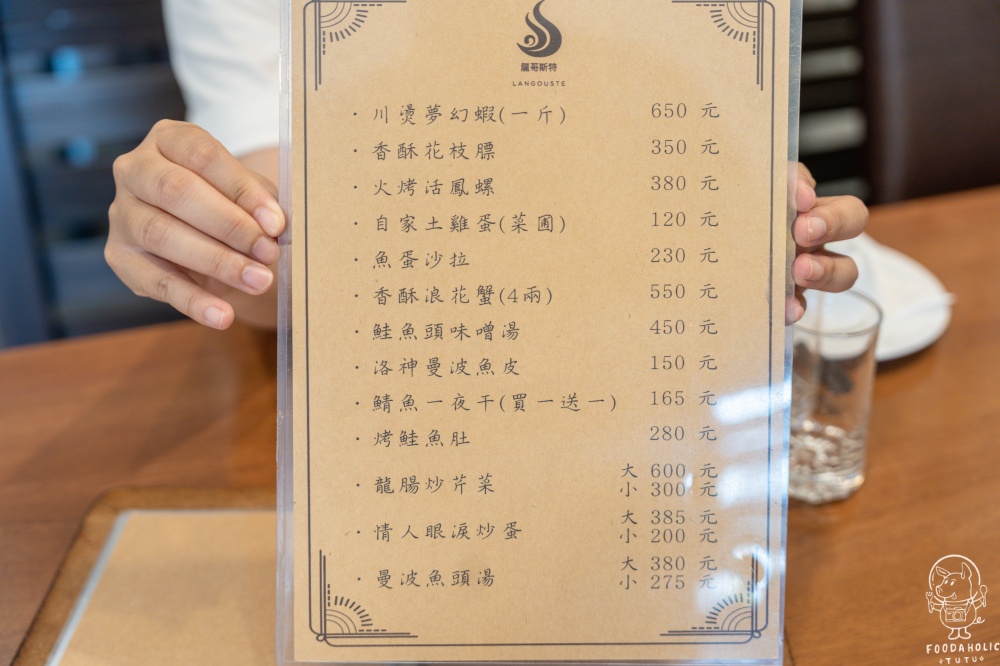 龍哥斯特
LANGOUSTE
·川燙夢幻蝦(一斤) 650 元
·香酥花枝膘 350 元
·火烤活鳳螺 380 元
·自家土雞蛋(菜圃) 120 元
·魚蛋沙拉 230 元
·香酥浪花蟹(4兩) 550 元
·鮭魚頭味噌湯 450 元
·洛神曼波魚皮 150 元
·鯖魚一夜干(買一送一) 165 元
·烤鮭魚肚 280 元
·龍腸炒芹菜 大 600 元
小 300 元
·情人眼淚炒蛋 大 385 元
小 200 元
·曼波魚頭湯 大 380 元
小 275 元
FOODAHOLIC
TUTU